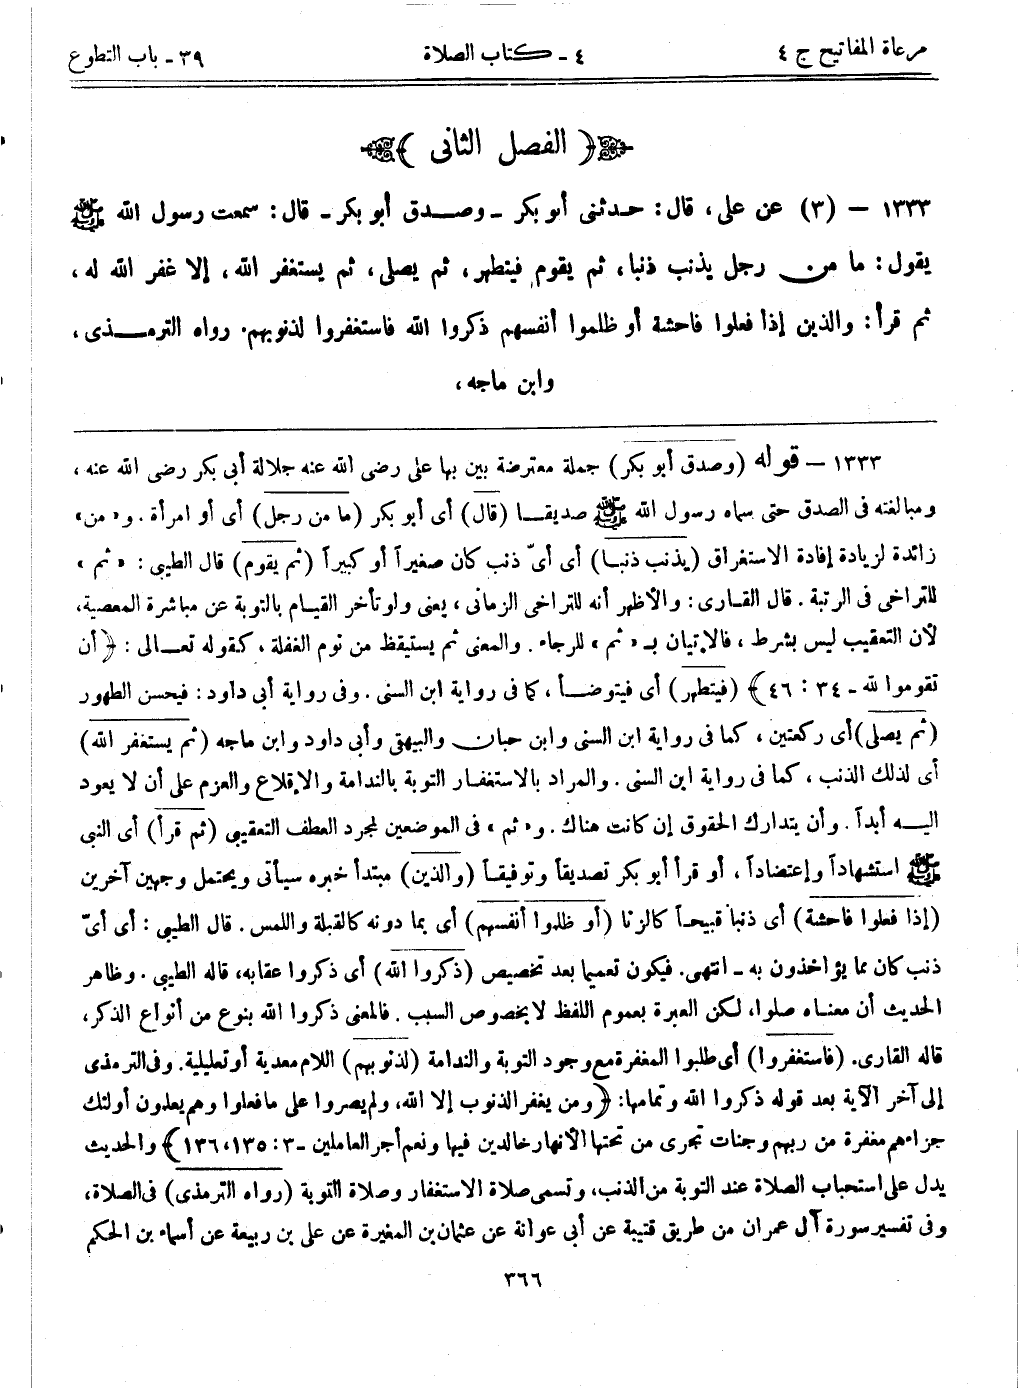 مرعاة المفاتيح ج ٤
٤ ـ كتاب الصلاة
٣٩ ـ باب التطوع
﴿ الفصل الثانى ﴾
١٣٣٣ – (٣) عن على، قال: حدثنى أبو بكر ـ وصدق أبو بكر ـ قال: سمعت رسول الله ﷺ
يقول: ما من رجل يذنب ذنبا، ثم يقوم فيتطهر، ثم يصلى، ثم يستغفر الله، إلا غفر الله له،
ثم قرأ: والذين إذا فعلوا فاحشة أو ظلموا أنفسهم ذكروا الله فاستغفروا لذنوبهم. رواه الترمذى،
وابن ماجه،
١٣٣٣ – قوله (وصدق أبو بكر) جملة معترضة بين بها على رضى الله عنه جلالة أبى بكر رضى الله عنه،
ومبالغته فى الصدق حتى سماه رسول الله ﷺ صديقا (قال) أى أبو بكر (ما من رجل) أى أو امرأة. و«من»
زائدة لزيادة إفادة الاستغراق (يذنب ذنبا) أى أىّ ذنب كان صغيراً أو كبيراً (ثم يقوم) قال الطيبى: «ثم»
للتراخى فى الرتبة. قال القارى: والأظهر أنه للتراخى الزمانى، يعنى ولو تأخر القيام بالتوبة عن مباشرة المعصية،
لأن التعقيب ليس بشرط، فالإتيان بـ «ثم» للرجاء. والمعنى ثم يستيقظ من نوم الغفلة، كقوله تعالى: ﴿أن
تقوموا لله ـ ٣٤ : ٤٦﴾ (فيتطهر) أى فيتوضأ، كما فى رواية ابن السنى. وفى رواية أبى داود: فيحسن الطهور
(ثم يصلى) أى ركعتين، كما فى رواية ابن السنى وابن حبان والبيهقى وأبى داود وابن ماجه (ثم يستغفر الله)
أى لذلك الذنب، كما فى رواية ابن السنى. والمراد بالاستغفار التوبة بالندامة والإقلاع والعزم على أن لا يعود
اليه أبداً. وأن يتدارك الحقوق إن كانت هناك. و«ثم» فى الموضعين لمجرد العطف التعقيبى (ثم قرأ) أى النبى
ﷺ استشهاداً وإعتضاداً، أو قرأ أبو بكر تصديقاً وتوفيقاً (والذين) مبتدأ خبره سيأتى ويحتمل وجهين آخرين
(إذا فعلوا فاحشة) أى ذنبا قبيحاً كالزنا (أو ظلموا أنفسهم) أى بما دونه كالقبلة واللمس. قال الطيبى: أى أىّ
ذنب كان مما يؤاخذون به ـ انتهى. فيكون تعميما بعد تخصيص (ذكروا الله) أى ذكروا عقابه، قاله الطيبى. وظاهر
الحديث أن معناه صلوا، لكن العبرة بعموم اللفظ لا بخصوص السبب. فالمعنى ذكروا الله بنوع من أنواع الذكر،
قاله القارى. (فاستغفروا) أى طلبوا المغفرة مع وجود التوبة والندامة (لذنوبهم) اللام معدية أو تعليلية. وفى الترمذى
إلى آخر الآية بعد قوله ذكروا الله وتمامها: ﴿ومن يغفر الذنوب إلا الله، ولم يصروا على ما فعلوا وهم يعلمون أولئك
جزاءهم مغفرة من ربهم وجنات تجرى من تحتها الأنهار خالدين فيها ونعم أجر العاملين ـ ٣: ١٣٥، ١٣٦﴾ والحديث
يدل على استحباب الصلاة عند التوبة من الذنب، وتسمى صلاة الاستغفار وصلاة التوبة (رواه الترمذى) فى الصلاة،
وفى تفسير سورة آل عمران من طريق قتيبة عن أبى عوانة عن عثمان بن المغيرة عن على بن ربيعة عن أسماء بن الحكم
٣٦٦